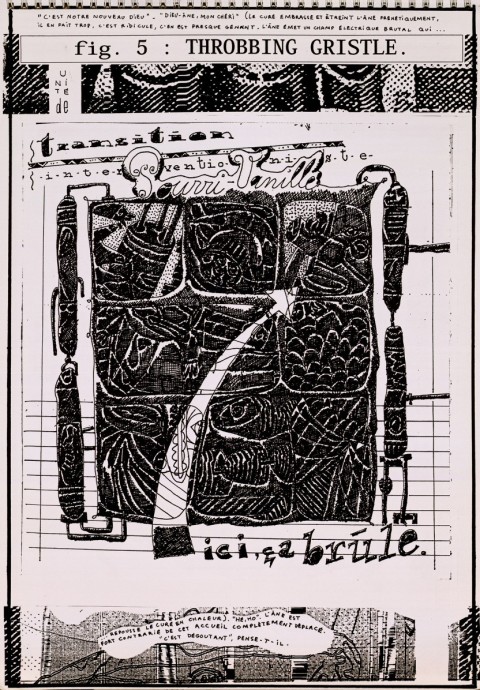 "C'EST NOTRE NOUVEAU DIEU". "DIEU-ÂNE, MON CHÉRI" (LE CURÉ EMBRASSE ET ÉTREINT L'ÂNE FRÉNÉTIQUEMENT,
IL EN FAIT TROP, C'EST RIDICULE, C'EN EST PRESQUE GÊNANT. L'ÂNE ÉMET UN CHAMP ÉLECTRIQUE BRUTAL QUI ...
fig. 5 : THROBBING GRISTLE.
UNITÉ
de
transition
-i-n-t-e-r-ventionniste-
Pourri-Vanille
ici, ça brûle.
REPOUSSE LE CURÉ EN CHALEUR). "HÉ, HO". L'ÂNE EST
FORT CONTRARIÉ DE CET ACCUEIL COMPLÈTEMENT DÉPLACÉ.
"C'EST DÉGOUTANT", PENSE-T-IL.